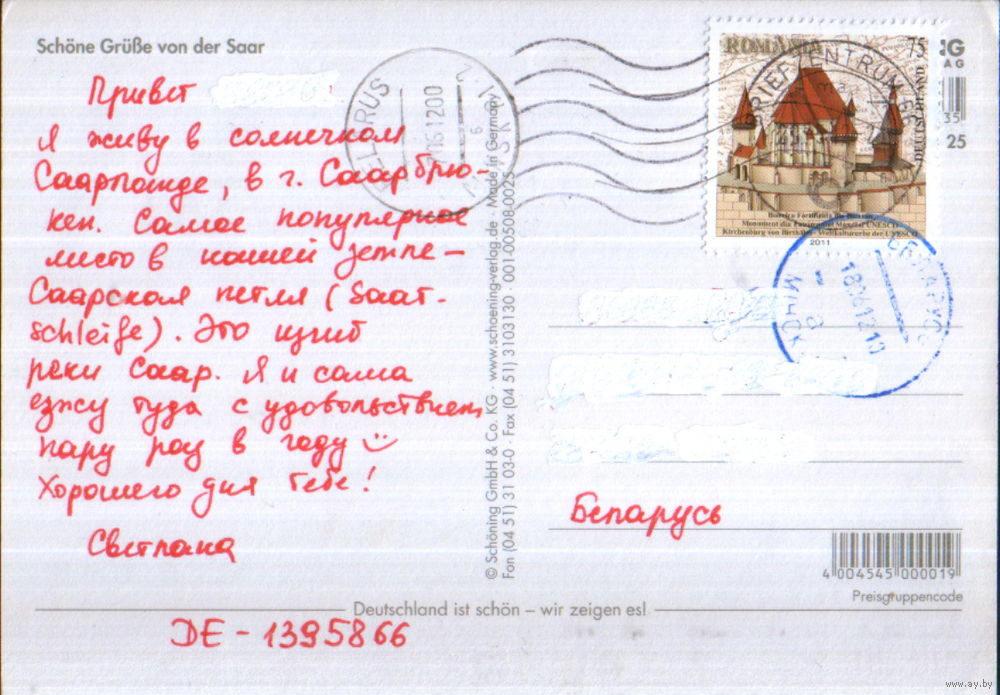 Schöne Grüße von der Saar
Привет
Я живу в солнечном
Саарланде, в г. Саарбрю-
кен. Самое популярное
место в нашей земле –
Саарская петля (Saar-
schleife). Это изгиб
реки Саар. Я и сама
езжу туда с удовольствием
пару раз в году
Хорошего дня тебе!
Светлана
DE - 1395866
Deutschland ist schön – wir zeigen es!
© Schöning GmbH & Co. KG · www.schoening-verlag.de · Made in Germany
Fon (04 51) 31 03-0 · Fax (04 51) 3103130 · 001-00508-0025
BELARUS
MINSK
BRIEFZENTRUM
ROMÂNIA
75
DEUTSCHLAND
Biserica Fortificată din Biertan,
Monument din Patrimoniul Mondial UNESCO
Kirchenburg von Birthälm - Weltkulturerbe der UNESCO
2011
G
AG
35
25
БЕЛАРУСЬ
МИНСК
Беларусь
4 004545 000019
Preisgruppencode
www.ay.by